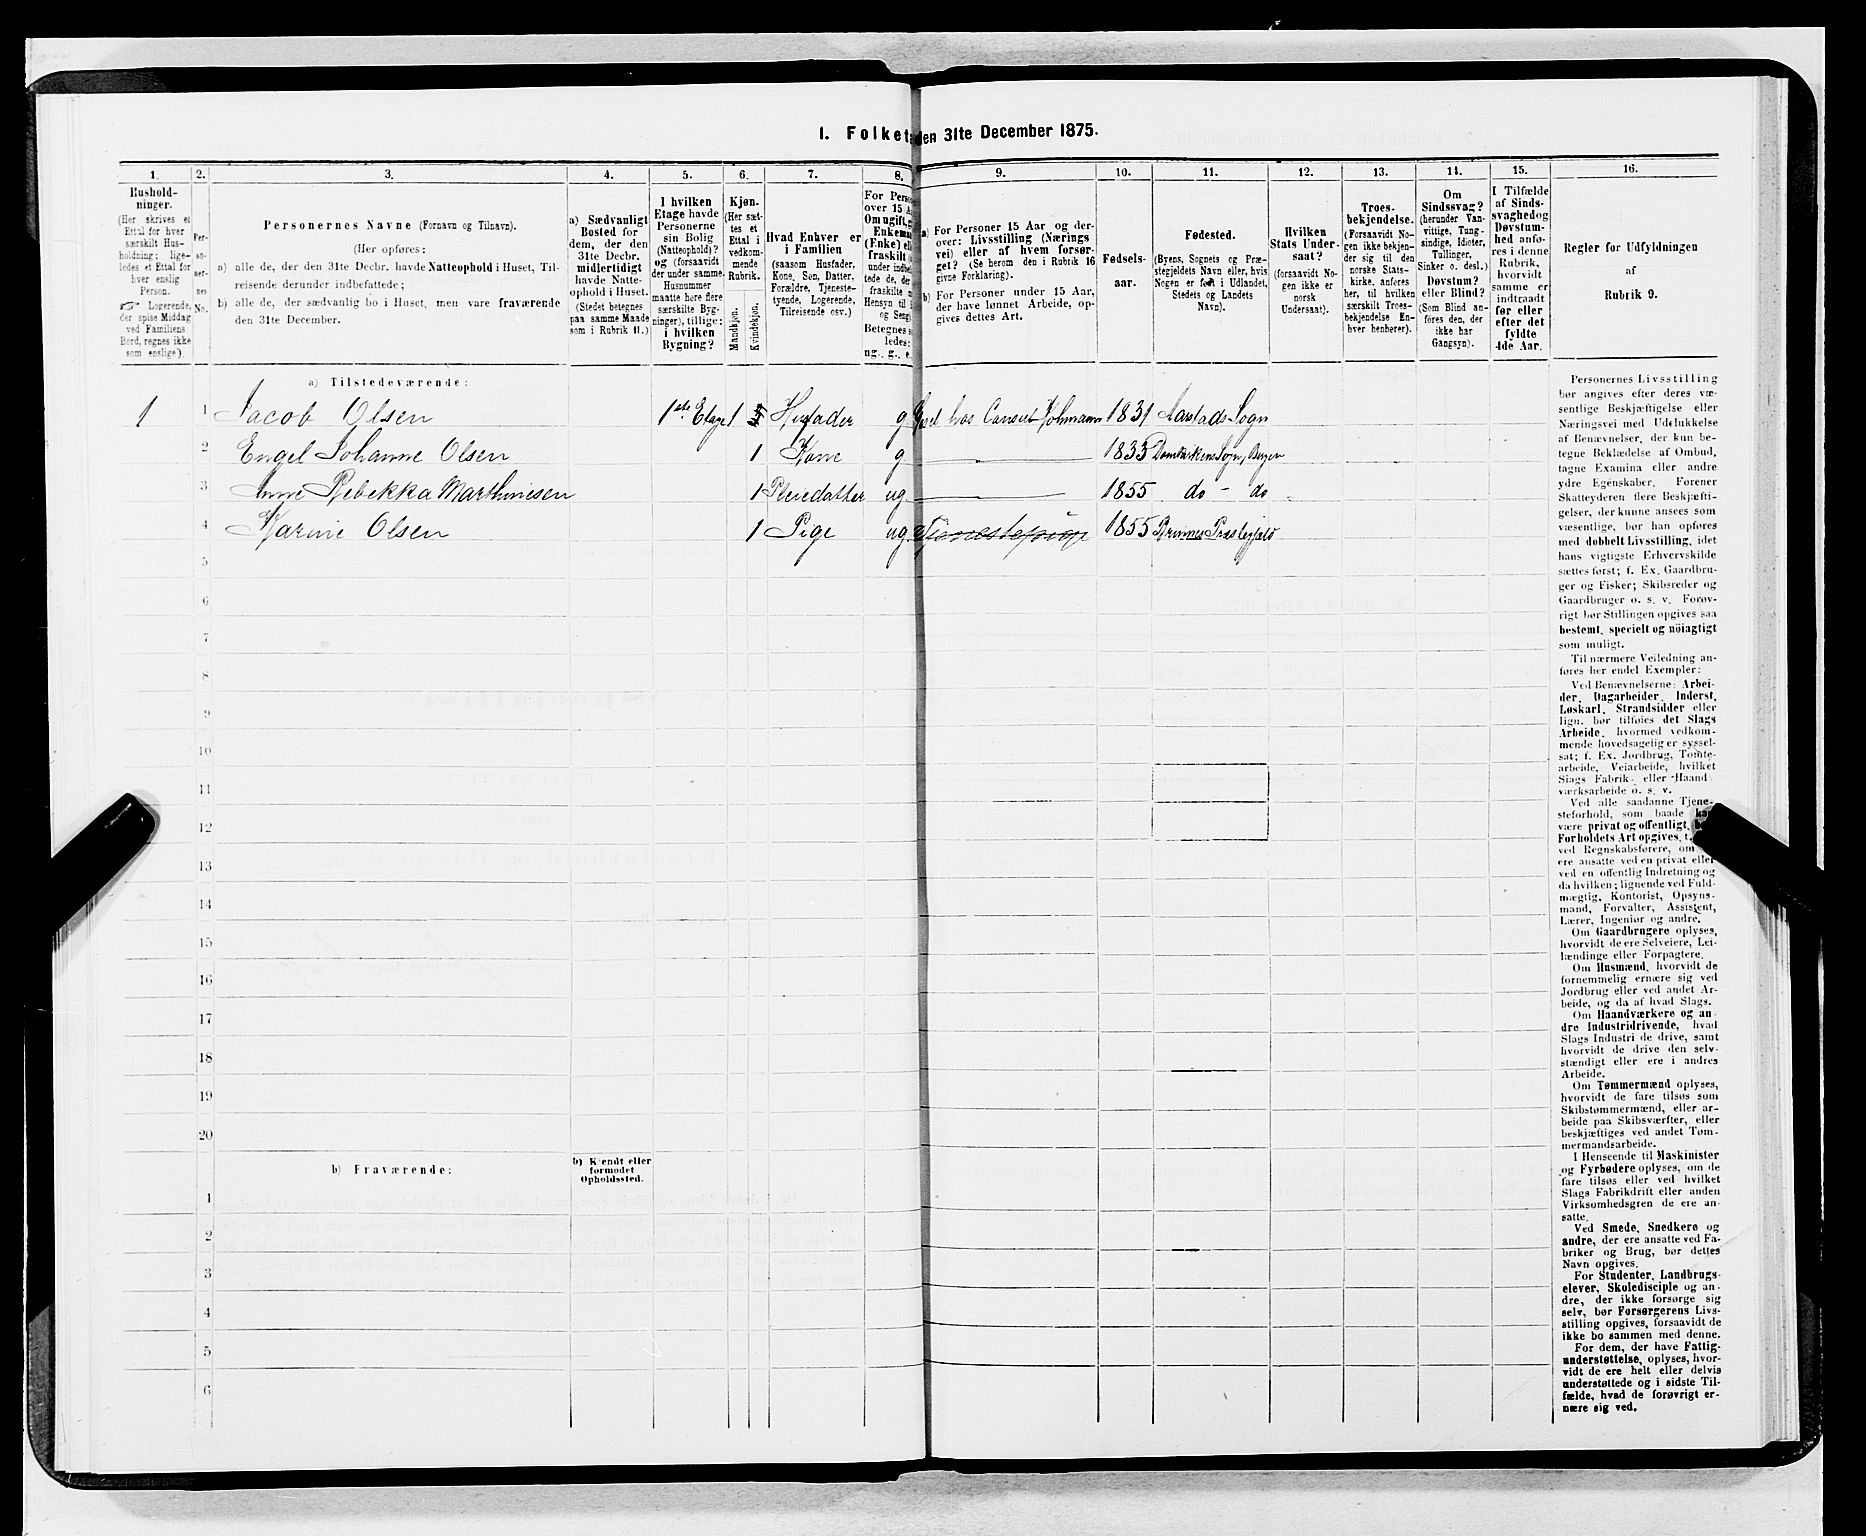 1. Folket
den 31te December 1875.
1.
2.
3.
4.
5.
6.
7.
8.
9.
10.
11.
12.
13.
14.
15.
16.
Hushold-
ninger.
(Her skrives et
Ettal for hver
særskilt Hus-
holdning; lige-
ledes et Ettal for
hver enslig
Person.
☞ Logerende,
der spise Middag
ved Familiens
Bord, regnes ikke
som enslige).
Per-
so-
ner-
nes
No.
Personernes Navne (Fornavn og Tilnavn).
(Her opføres:
a) alle de, der den 31te Decbr. havde Natteophold i Huset, Til-
reisende derunder indbefattede;
b) alle de, der sædvanlig bo i Huset, men vare fraværende
den 31te December.
a) Sædvanligt
Bosted for
dem, der den
31te Decbr.
midlertidigt
havde Natte-
ophold i Huset.
(Stedet betegnes
paa samme Maade
som i Rubrik 11.)
I hvilken
Etage havde
Personerne
sin Bolig
(Natteophold)?
og (forsaavidt
der under samme
Husnummer
maatte høre flere
særskilte Byg-
ninger), tillige:
i hvilken
Bygning?
Kjøn.
(Her sæt-
tes et
Ettal i
vedkom-
mende
Rubrik.
Mandkjøn.
Kvindekjøn.
Hvad Enhver er
i Familien
(saasom Husfader,
Kone, Søn, Datter,
Forældre, Tjeneste-
tyende, Logerende,
Tilreisende osv.)
For Perso
over 15 A
Om ugift, g
Enkema
(Enke) ell
fraskilt
under indbe
tede de, der
fraskilte
Hensyn til
og Seng
Betegnes s
ledes:
ug., g., e.
a) For Personer 15 Aar og der-
over: Livsstilling (Nærings
vei) eller af hvem forsør-
get? (Se herom den i Rubrik 16
givne Forklaring).
b) For Personer under 15 Aar,
der have lønnet Arbeide, op-
gives dettes Art.
Fødsels-
aar.
Fødested.
(Byens, Sognets og Præ-
stegjeldets Navn eller, hvis
Nogen er født i Udlandet,
Stedets og Landets
Navn).
Hvilken
Stats Under-
saat?
(forsaavidt No-
gen ikke er
norsk
Undersaat).
Troes-
bekjendelse.
(Forsaavidt No-
gen ikke bekjen-
der sig til den
norske Stats-
kirke, anføres
her, til hvilken
særskilt Troes-
bekjendelse En-
hver henhører).
Om
Sindssvag?
(herunder Van-
vittige, Tung-
sindige, Idioter,
Sinker o. desl.)
Døvstum?
eller Blind?
(Som Blind an-
føres den, der
ikke har
Gangsyn).
I Tilfælde
af Sinds-
svaghed og
Døvstum-
hed anfø-
res i denne
Rubrik,
hvorvidt
samme er
indtraadt
før eller
efter det
fyldte
4de Aar.
Regler for Udfyldningen
af
Rubrik 9.
a) Tilstedeværende:
1 1 Jacob Olsen 1ste Etage 1 Husfader g hos Consul 1831 Aarstads Sogn
2 Engel Johanne Olsen 1 Kone g 1833 Domkirkens Sogn, Bergen
3 Anne Rebekka Marthinesen 1 Pleiedatter ug 1855 do - do
4 Karine Olsen 1 Pige ug Tjenestepige 1855
5
6
7
8
9
10
11
12
13
14
15
16
17
18
19
20
b) Fraværende:
b) Kjendt eller
formodet
Opholdssted.
1
2
3
4
5
6
Personernes Livsstilling
bør angives efter deres væ-
sentlige Beskjæftigelse eller
Næringsvei med Udelukkelse
af Benævnelser, der kun be-
tegne Beklædelse af Ombud,
tagne Examina eller andre
ydre Egenskaber. Forener
Skatteyderen flere Beskjæfti-
gelser, der kunne ansees som
væsentlige, bør han opføres
med dobbelt Livsstilling, idet
hans vigtigste Erhvervskilde
sættes først; f. Ex. Gaardbru-
ger og Fisker; Skibsreder og
Gaardbruger o. s. v. Forøv-
rigt bør Stillingen opgives saa
bestemt, specielt og nöiagtigt
som muligt.
Til nærmere Veiledning an-
føres her endel Exempler:
Ved Benævnelserne: Arbei-
der, Dagarbeider, Inderst,
Løskarl, Strandsidder eller
lign. bør tilføies det Slags
Arbeide, hvormed vedkom-
mende hovedsagelig er syssel-
sat; f. Ex. Jordbrug, Tomte-
arbeide, Veiarbeide, hvilket
Slags Fabrik- eller Haand
værksarbeide o. s. v.
Ved alle saadanne Tjene-
steforhold, som baade
være privat og offentligt,
Forholdets Art opgives, t.
ved Regnskabsførere, om
ere ansatte ved en privat eller
ved en offentlig Indretning og
da hvilken; lignende ved Fuld-
mægtig, Kontorist, Opsyns-
mand, Forvalter, Assistent,
Lærer, Ingeniør og andre.
Om Gaardbrugere oplyses,
hvorvidt de ere Selveiere, Lei-
lændinge eller Forpagtere.
Om Husmænd, hvorvidt de
fornemmelig ernære sig ved
Jordbrug eller ved andet Ar-
beide, og da af hvad Slags.
Om Haandværkere og an-
dre Industridrivende, hvad
Slags Industri de drive, samt
hvorvidt de drive den selv-
stændigt eller ere i andres
Arbeide.
Om Tømmermænd oplyses,
hvorvidt de fare tilsøs som
Skibstømmermænd, eller ar-
beide paa Skibsværfter, eller
beskjæftiges ved andet Tøm-
mermandsarbeide.
I Henseende til Maskinister
og Fyrbødere oplyses, om de
fare tilsøs eller ved hvilket
Slags Fabrikdrift eller anden
Virksomhedsgren de ere an-
satte.
Ved Smede, Snedkere og
andre, der ere ansatte ved Fa-
briker og Brug, bør dettes
Navn opgives.
For Studenter, Landbrugs-
elever, Skoledisciple og an-
dre, der ikke forsørge sig
selv, bør Forsørgerens Livs-
stilling opgives, forsaavidt de
ikke bo sammen med denne.
For dem, der have Fattig-
understøttelse, oplyses, hvor-
vidt de ere helt eller delvis
understøttede og i sidste Til-
fælde, hvad de forøvrigt er-
nære sig ved.